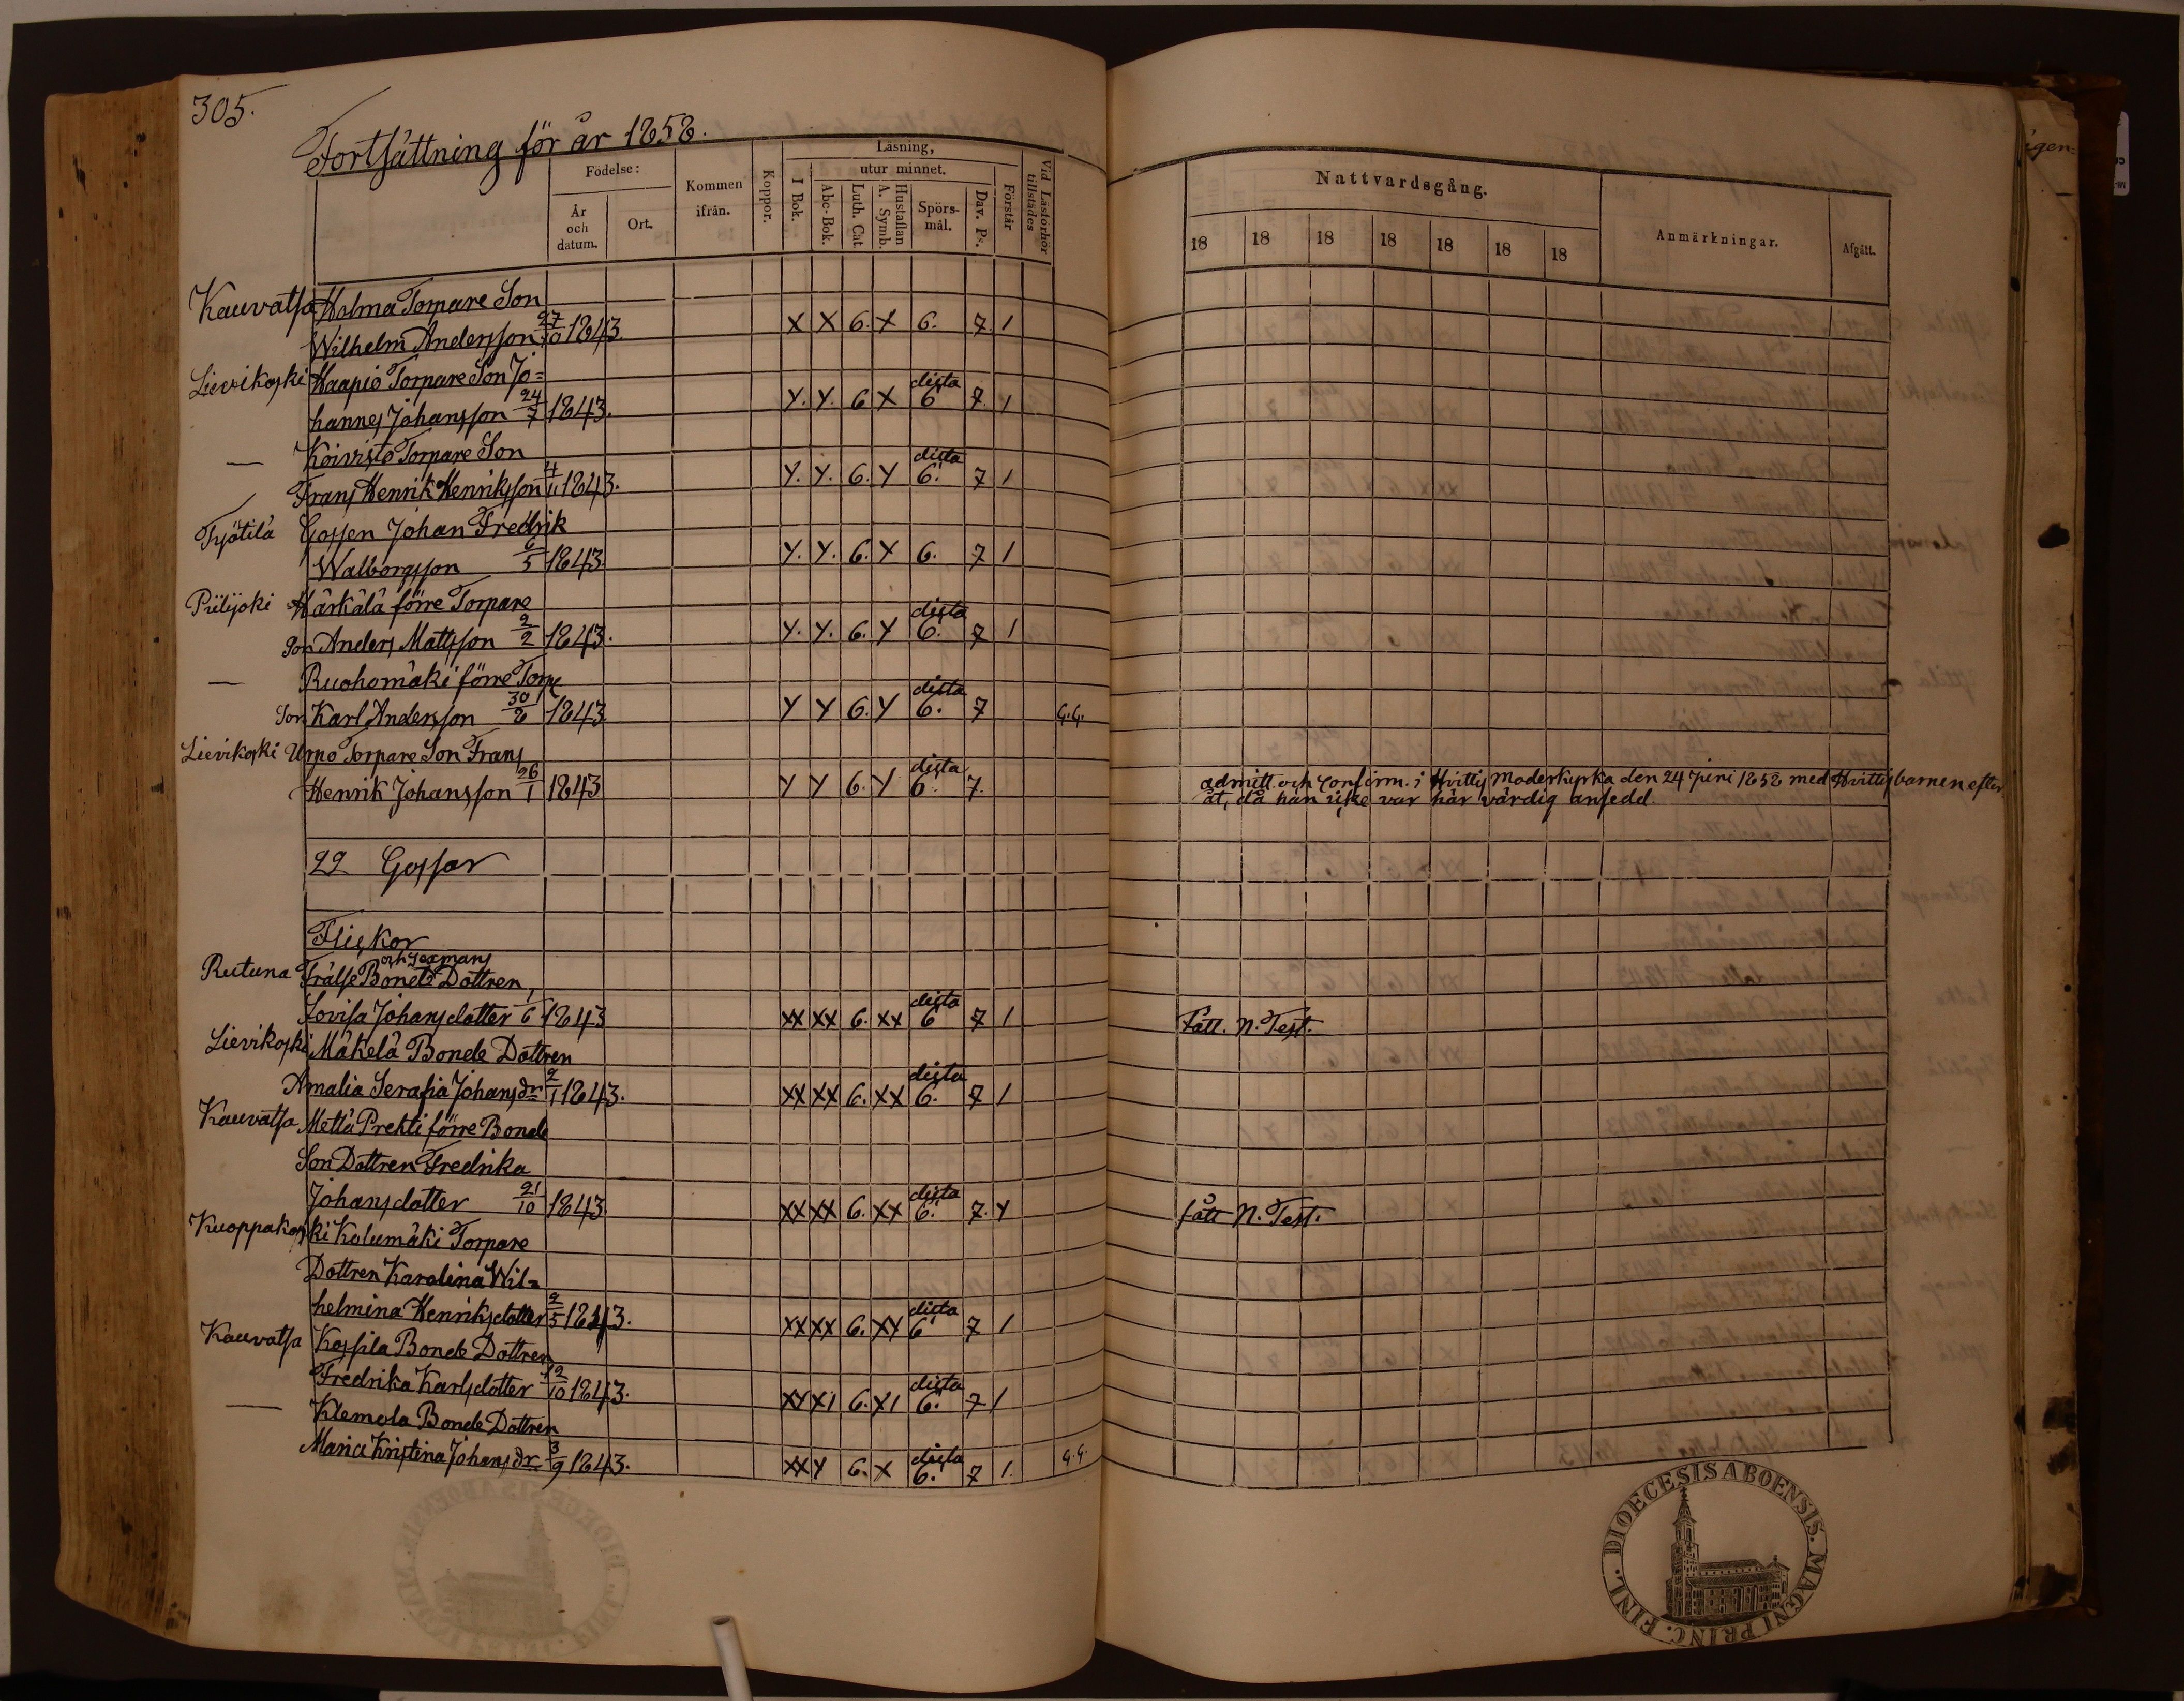 305.
Fortsättning för år 1858.
Födelse:
År och datum.
Ort.
Kommen ifrån.
Koppor.
Läsning,
I Bok.
utur minnet.
Abc-Bok.
Luth. Cat.
Hustaflan A. Symb.
Spörs-mål.
Dav. Ps.
Förstår
Vid Läsförhör tillstädes
Nattvardsgång.
18 18 18 18 18 18 18
Anmärkningar.
Afgått.
Kauvatsa Holma Torpare Son
Wilhelm Andersson 27/10 1843. X X 6. X 6. 7. 1
Lievikoski Haapio Torpare Son Jo=
hannes Johansson 24/7 1843. Y. Y. 6 X dista 6 7. 1
— Koivisto Torpare Son
Frans Henrik Henriksson 4/11 1843. Y. Y. 6. Y dista 6. 7 1
Työtilä Gossen Johan Fredrik
Walborgsson 6/5 1843 Y. Y. 6. Y 6. 7 1
Piilijoki Härkälä förre Torpare
Son Anders Mattsson 2/2 1843. Y. Y. 6. Y dista 6. 7 1
— Ruohomäki förre Torpe
Son Karl Andersson 30/8 1843 Y Y 6. Y dista 6. 7 G.G.
Lievikoski Urpo Torpare Son Frans
Henrik Johansson 26/1 1843 Y Y 6. Y dista 6. 7.
admitt och Confirm. i Hvittis Moderkyrka den 24 Juni 1858 med Hvittis barnen efter
åt, då han icke var här värdig ansedd.
22 Gossar
Flickor
Rutuna Frälse Bonde och Sexmans Dottren
Lovisa Johansdotter 1/6 1843 XX XX 6. XX dista 6 7 1 Fått. N. Test.
Lievikoski Mäkelä Bonde Dottren
Amalia Serafia Johansdr 2/1 1843. XX XX 6. XX dista 6. 7 1
Kauvatsa Mellä Prekti förre Bonde
Son Dottren Fredrika
Johansdotter 21/10 1843 XX XX 6. XX dista 6. 7. Y fått N. Test.
Kuoppakoski Kalumäki Torpare
Dottren Karolina Wil=
helmina Henriksdotter 2/5 1843. XX XX 6. XY dista 6 7 1
Kauvatsa Kossila Bonde Dottren
Fredrika Karlsdotter 12/10 1843. XY X1 6. X1 dista 6. 7 1
— Klemola Bonde Dottren
Maria Kristina Johansdr 3/9 1843. XX Y 6. X dista 6. 7 1. G.G.
DIOECESIS ABOENSIS. MAGNI PRINC. FINL.